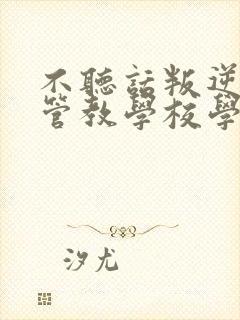 不聽話叛逆
管教學校學
汐尤